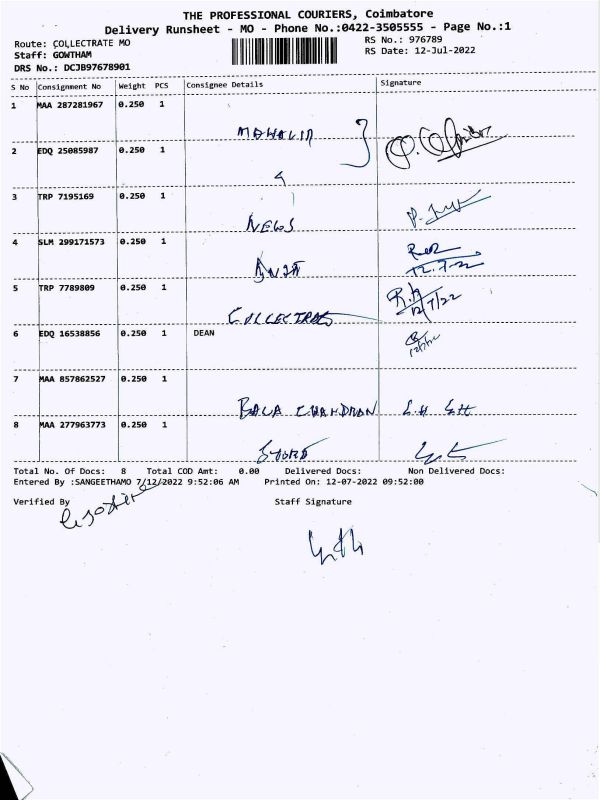 THE PROFESSIONAL COURIERS, Coimbatore
Delivery Runsheet - MO - Phone No.:0422-3505555 - Page No.:1
Route: COLLECTRATE MO RS No.: 976789
Staff: GOWTHAM RS Date: 12-Jul-2022
DRS No.: DCJB97678901
S No Consignment No Weight PCS Consignee Details Signature
1 MAA 287281967 0.250 1
2 EDQ 25085987 0.250 1
3 TRP 7195169 0.250 1
NEWS
4 SLM 299171573 0.250 1
12.7.22
5 TRP 7789809 0.250 1
12/7/22
6 EDQ 16538856 0.250 1 DEAN
7 MAA 857862527 0.250 1
BALA CHANDRAN
8 MAA 277963773 0.250 1
Total No. Of Docs: 8 Total COD Amt: 0.00 Delivered Docs: Non Delivered Docs:
Entered By :SANGEETHAMO 7/12/2022 9:52:06 AM Printed On: 12-07-2022 09:52:00
Verified By Staff Signature